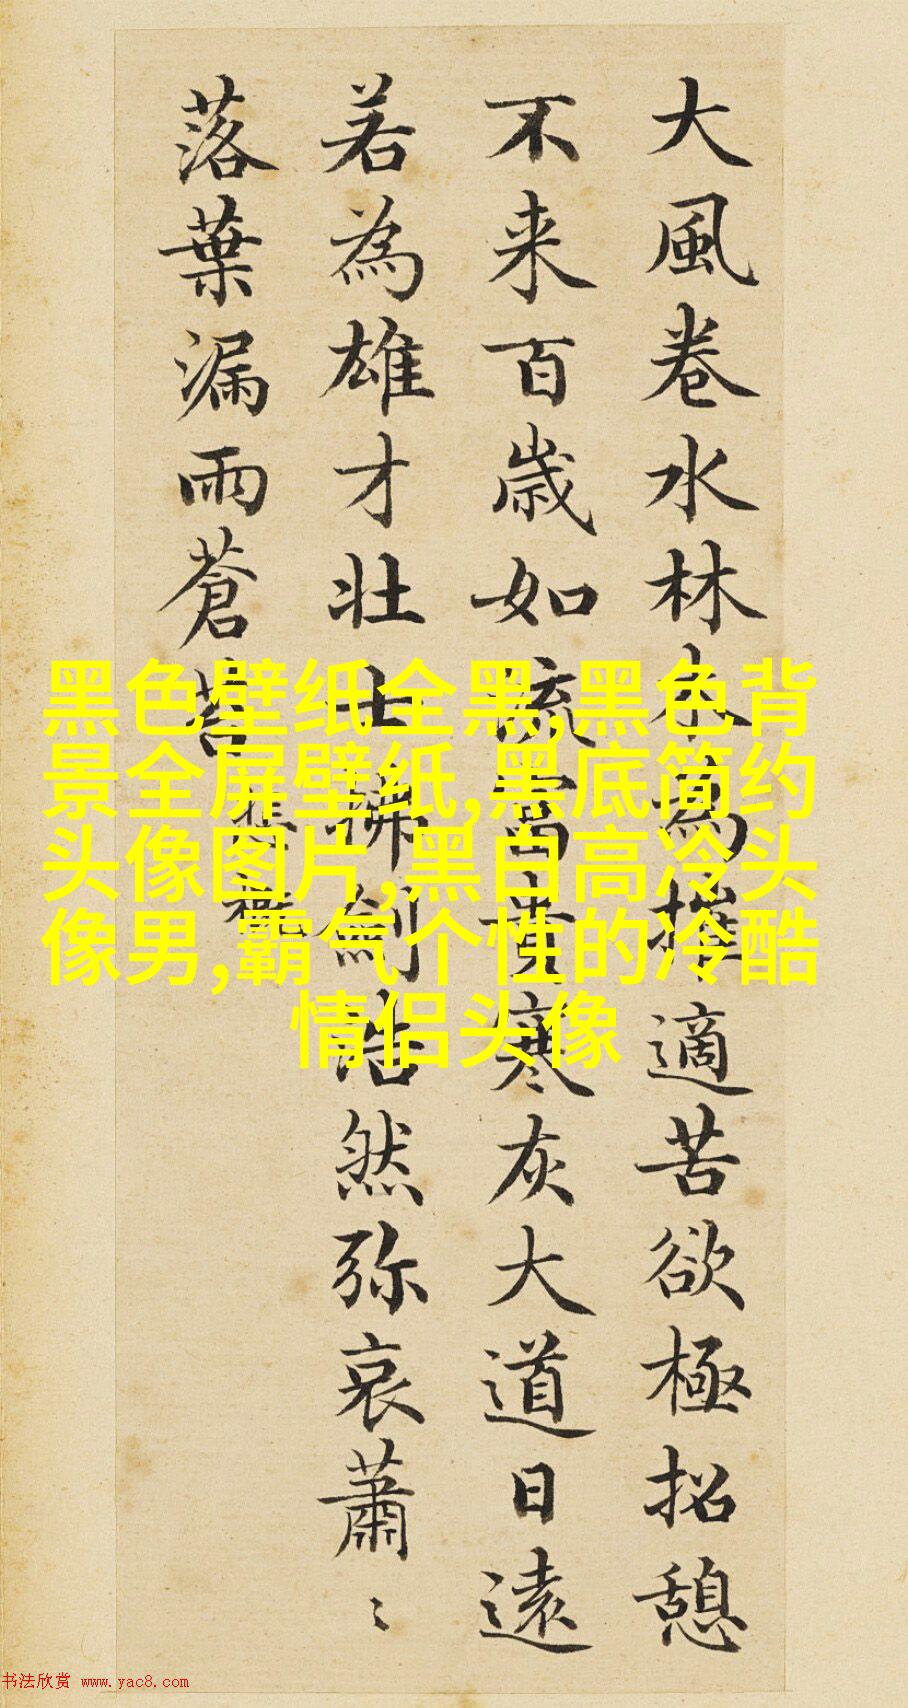 大風卷水林木為摧適苦欲極招憩
不来百歳如流富貴寒灰大道日遠
若為雄才壮士拂劍浩然弥哀蕭〻
落葉漏雨蒼苔
悲慨
黑色壁纸全黑,黑色背
景全屏壁纸,黑底简约
头像图片,黑白高冷头
像男,霸气个性的冷酷
情侣头像
书法欣赏 www.yac8.com